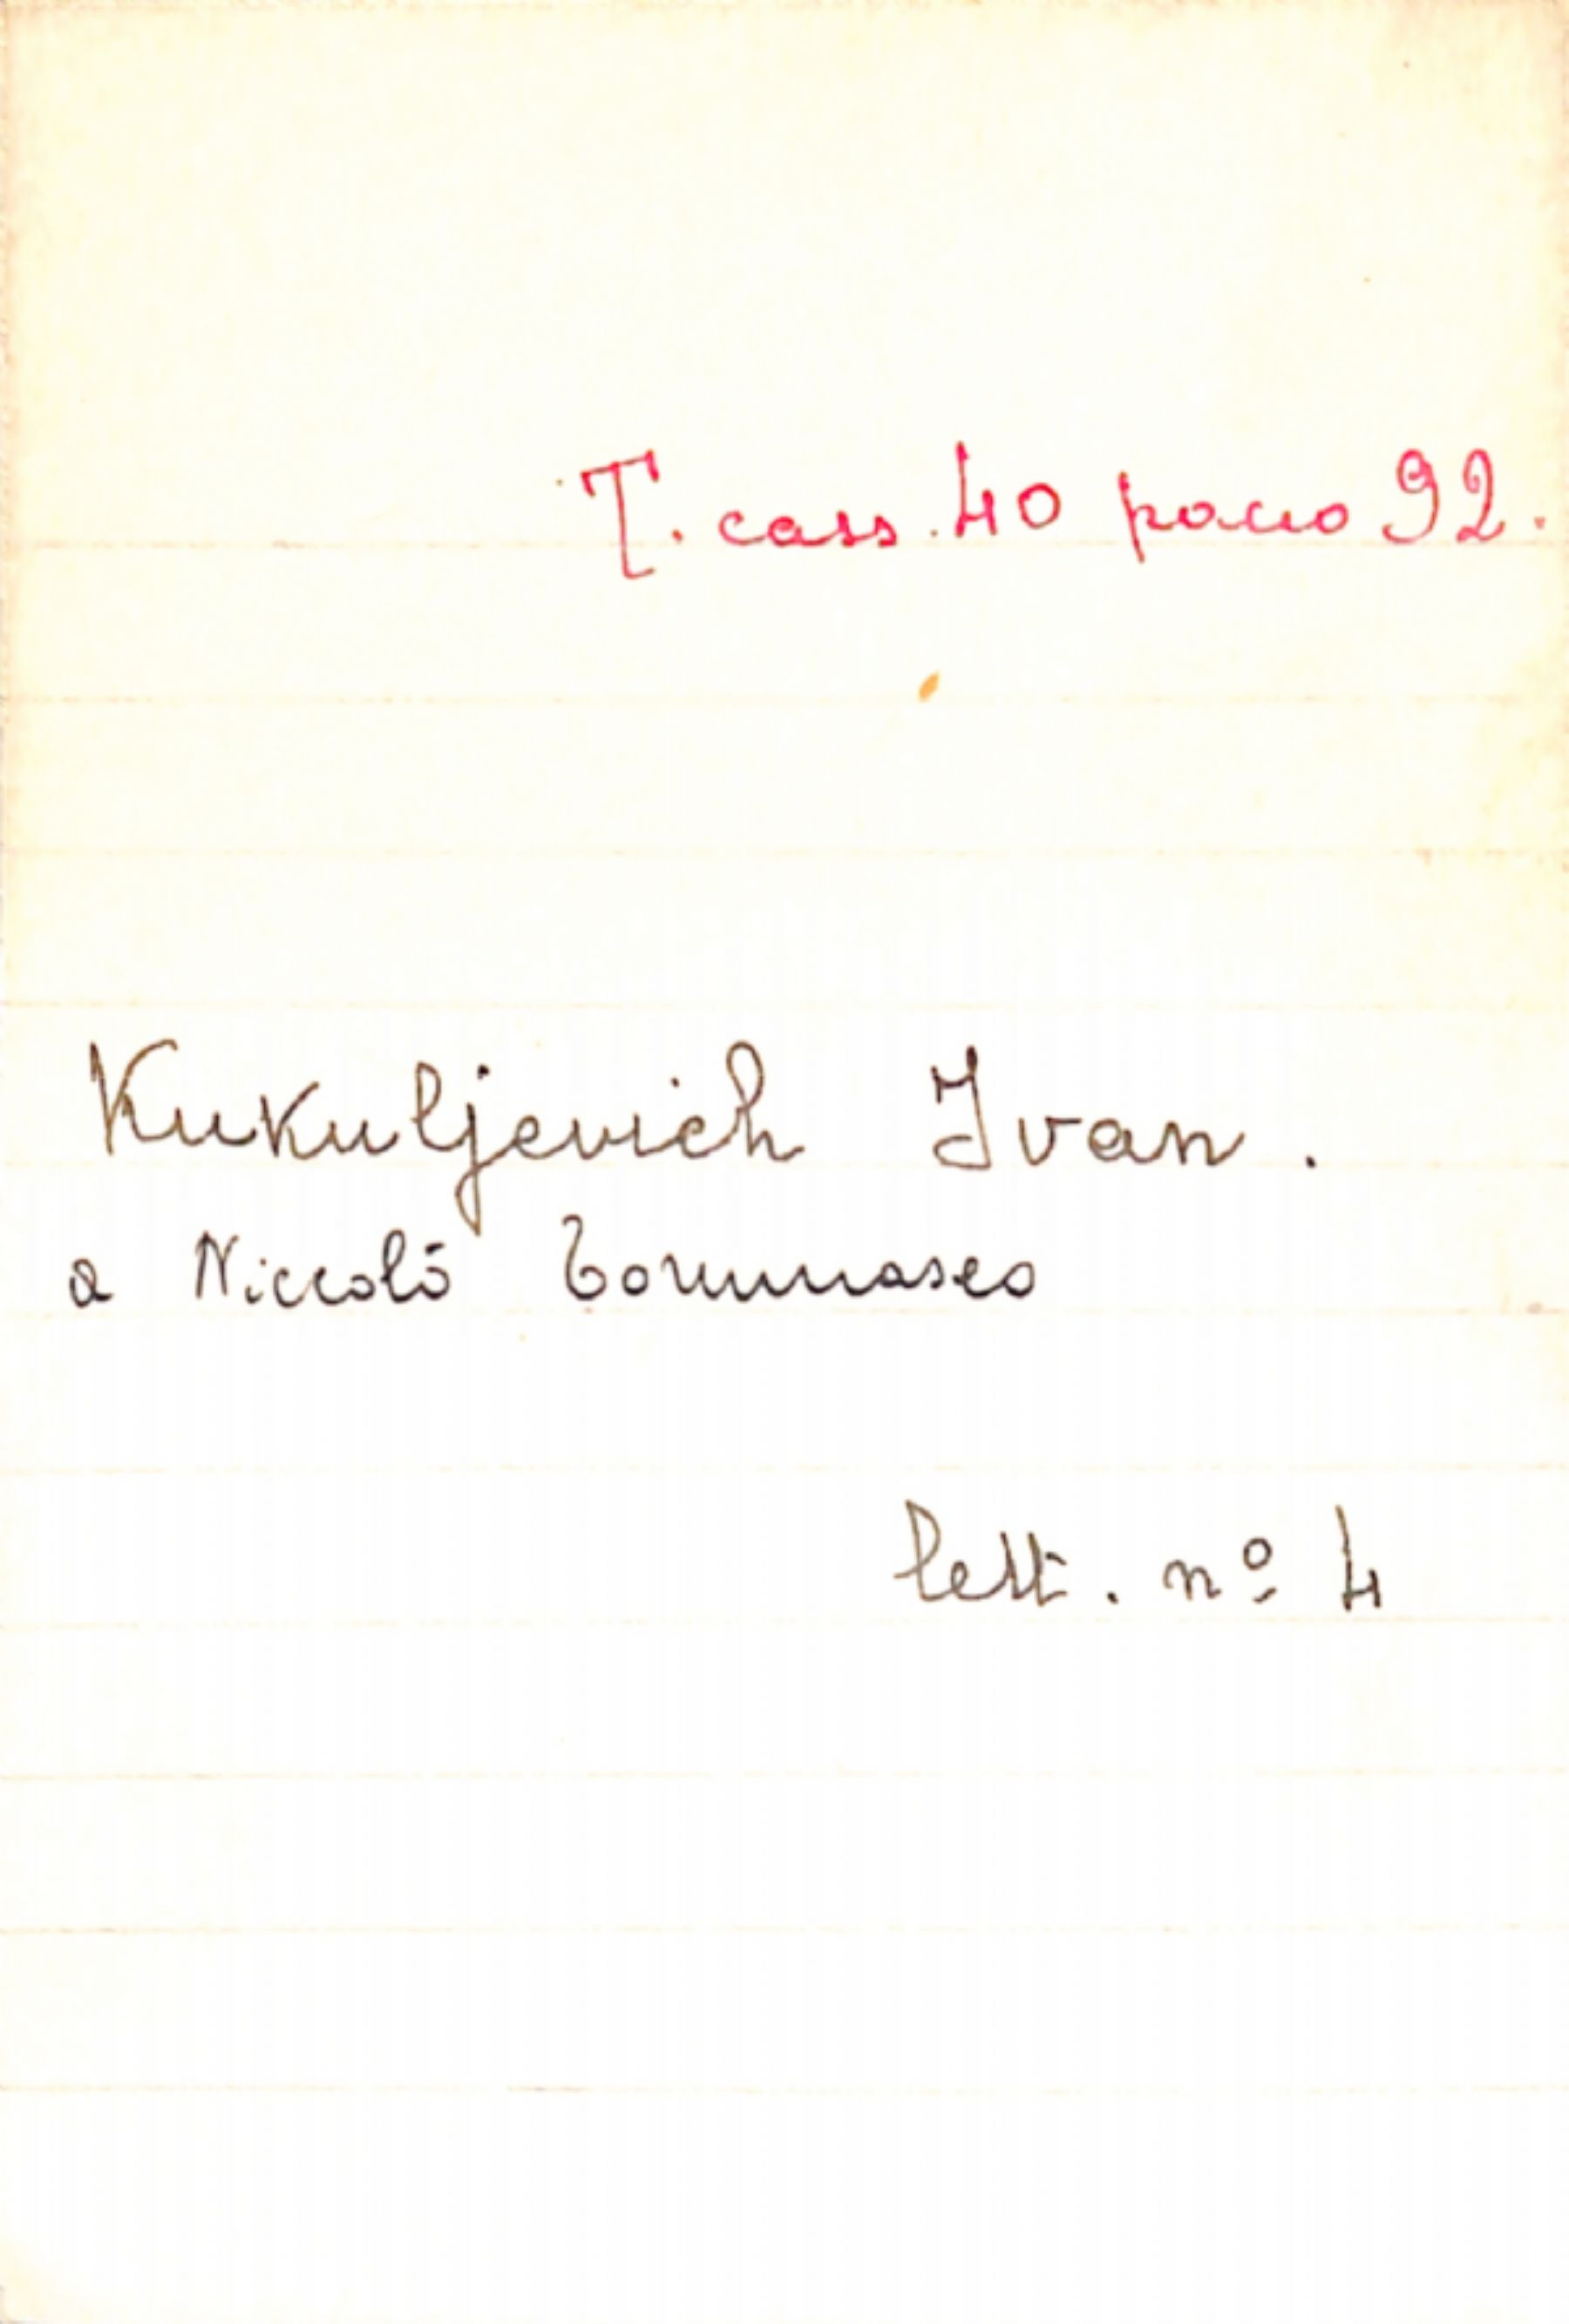 T. cass. 40 pacco 92.
Kukuljevich Ivan.
a Niccolò Tommaseo
lett. nº 4